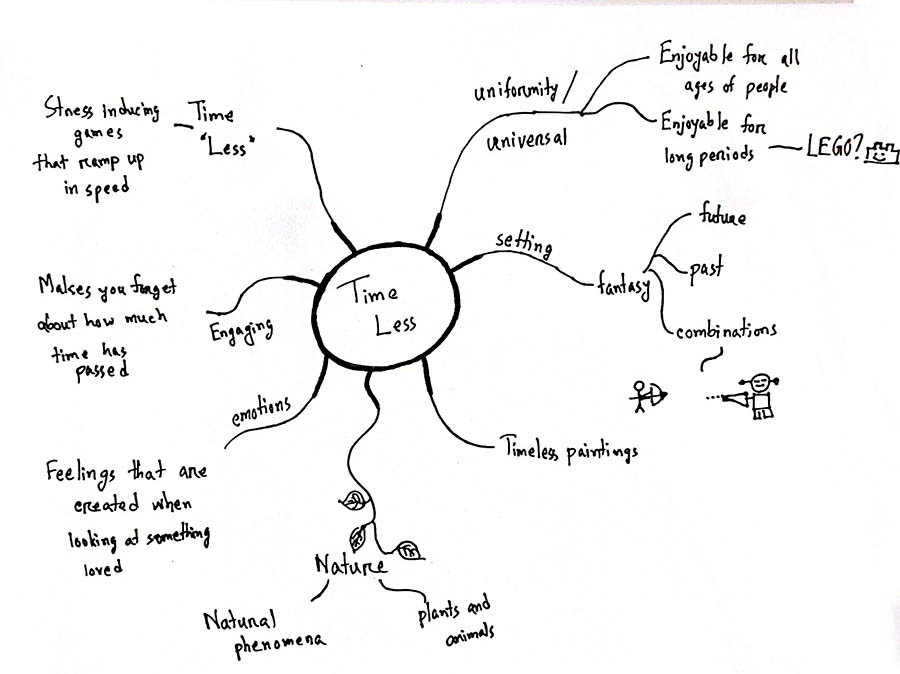 Time
Less
uniformity/
universal
Enjoyable for all
ages of people
Enjoyable for
long periods
LEGO?
setting
fantasy
future
past
combinations
Timeless paintings
Nature
Natural
phenomena
plants and
animals
emotions
Feelings that are
created when
looking at something
loved
Engaging
Makes you forget
about how much
time has
passed
Time
"Less"
Stress inducing
games
that ramp up
in speed